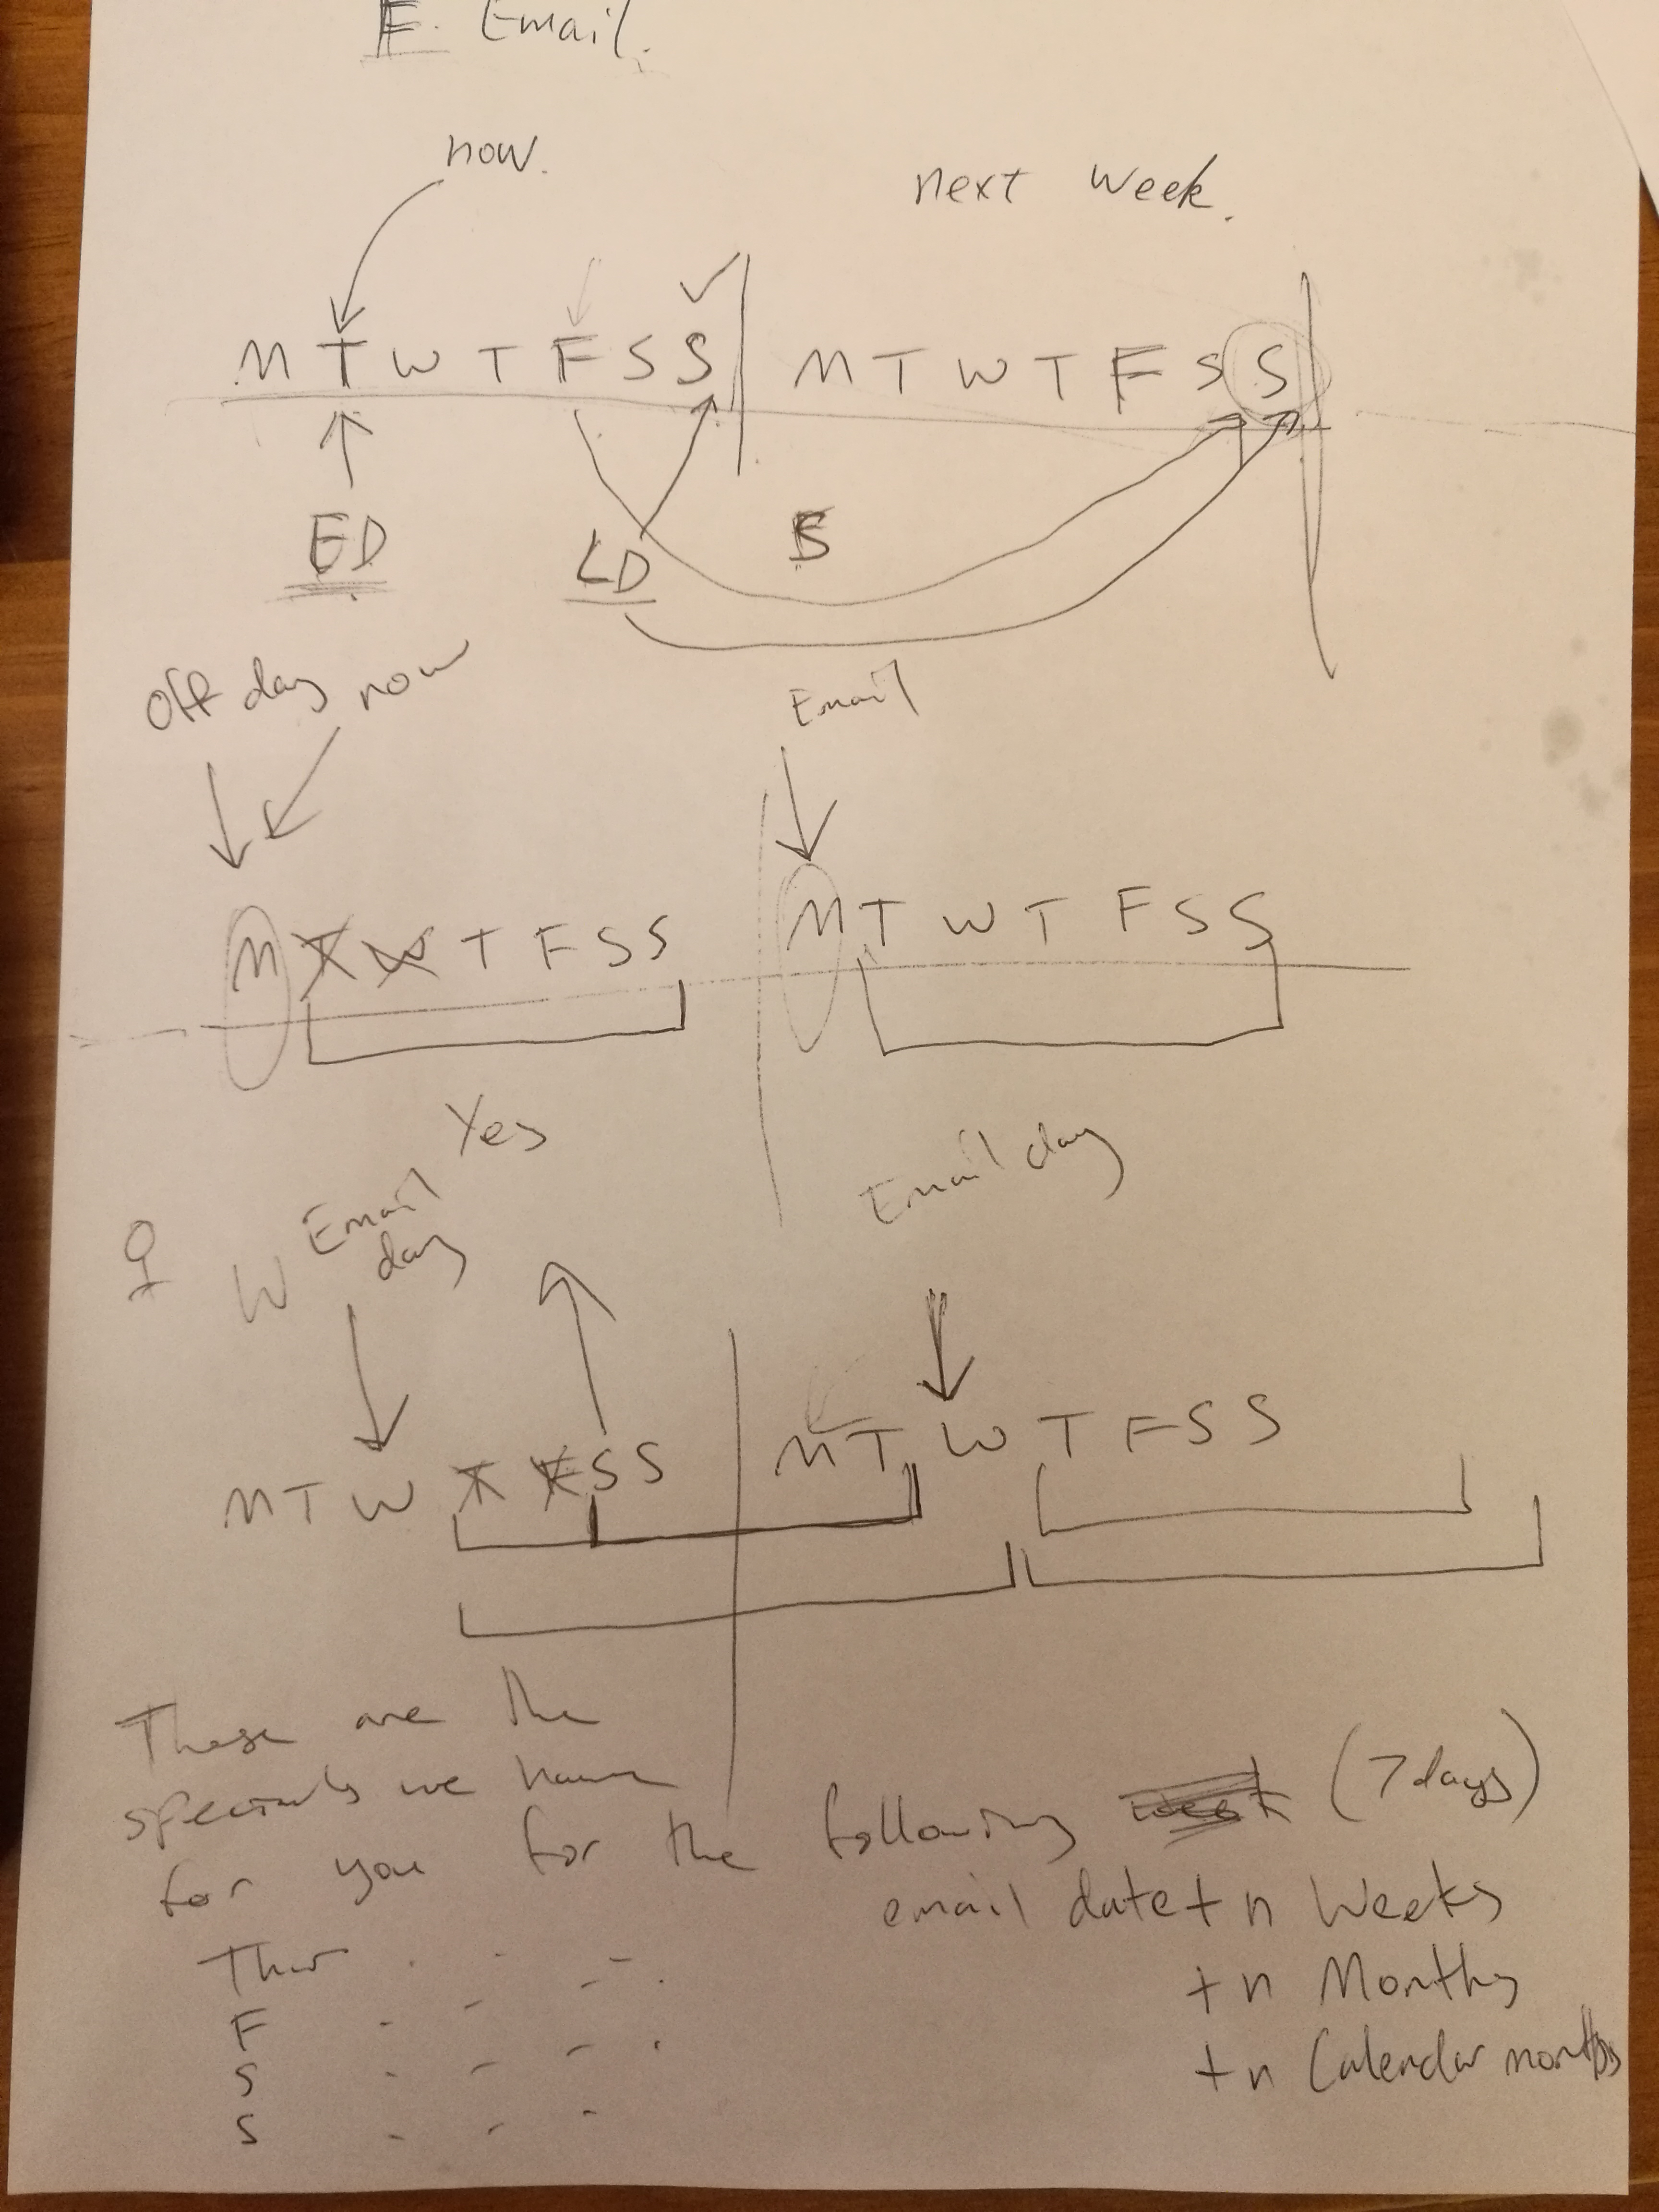 F. Email.
now.
next week.
M T W T F S S M T W T F S S
ED
LD
Off day now
Email
M T W T F S S M T W T F S S
Yes
Email day
W Email day
M T W T F S S M T W T F S S
These are the
specials we have
for you for the following week (7 days)
email date + n Weeks
+ n Months
+ n Calendar months
Thur
F
S
S